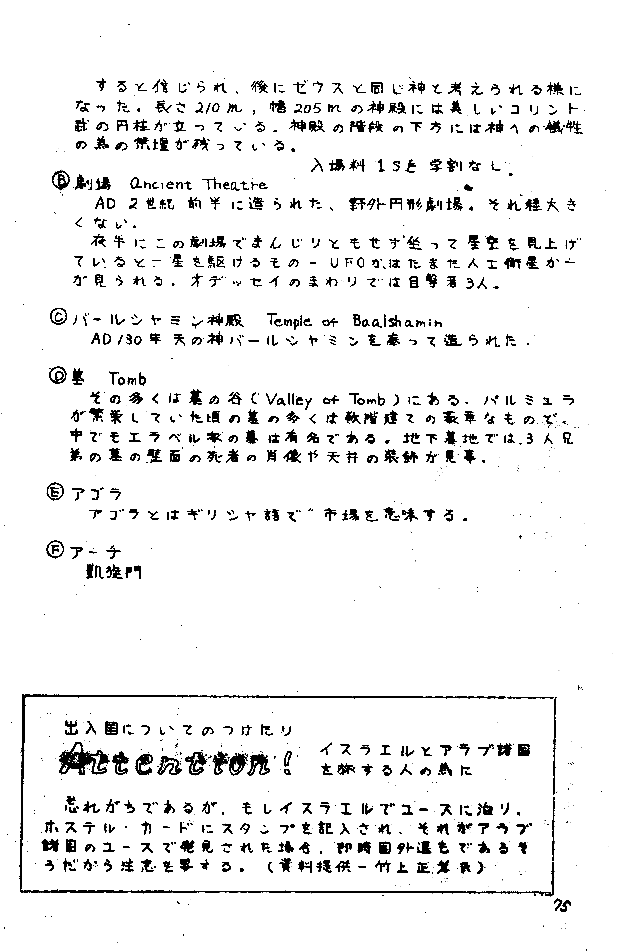 すると信じられ、後にゼウスと同じ神と考えられる様に
なった。長さ210m, 幅205mの神殿には美しいコリント
式の円柱が立っている。神殿の階段の下方には神への犠牲
の為の祭壇が残っている。
入場料 1S£ 学割なし.
Ⓑ劇場 Ancient Theatre
AD 2世紀 前半に造られた、野外円形劇場。それ程大き
くない.
夜半にこの劇場でまんじりともせず坐って星空を見上げ
ていると一星を駆けるもの－UFOかはたまた人工衛星か－
が見られる. オデッセイのまわりでは目撃者3人.
Ⓒバールシャミン神殿 Temple of Baalshamin
AD130年天の神バールシャミンを奉って造られた.
Ⓓ墓 Tomb
その多くは墓の谷(Valley of Tomb)にある. パルミュラ
が繁栄していた頃の墓の多くは数階建ての豪華なもので、
中でもエラベル家の墓は有名である. 地下墓地では、3人兄
弟の墓の壁面の死者の肖像や天井の装飾が見事.
Ⓔアゴラ
アゴラとはギリシャ語で"市場を意味する.
Ⓕアーチ
凱旋門
出入国についてのつけたり
Attention! イスラエルとアラブ諸国
を旅する人の為に
忘れがちであるが, もしイスラエルでユースに泊り,
ホステル・カードにスタンプを記入され、それがアラブ
諸国のユースで発見された場合, 即時国外退去であるそ
うだから注意を要する. (資料提供－竹上正 氏)
75